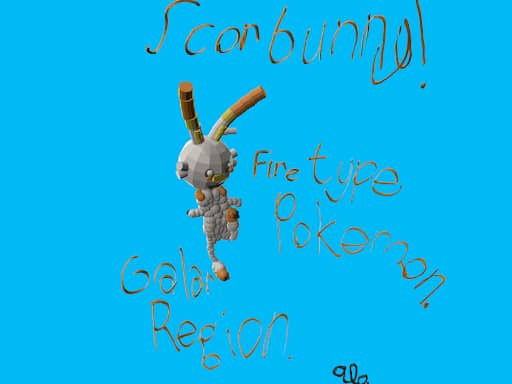 Scorbunny!
Fire type
Pokemon.
Galar
Region.